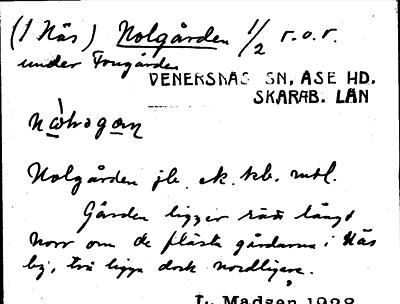 (I Näs) Nolgården 1/2 r.o.r.
under Forgården
VENERSNÄS SN, ÅSE HD.
SKARAB. LÄN
Nolgården jb. ek. kb. mtl.
Gården ligger rätt långt
norr om de flästa gårdarna i Näs
by, två ligga dock nordligare.
L. Madsen 1928